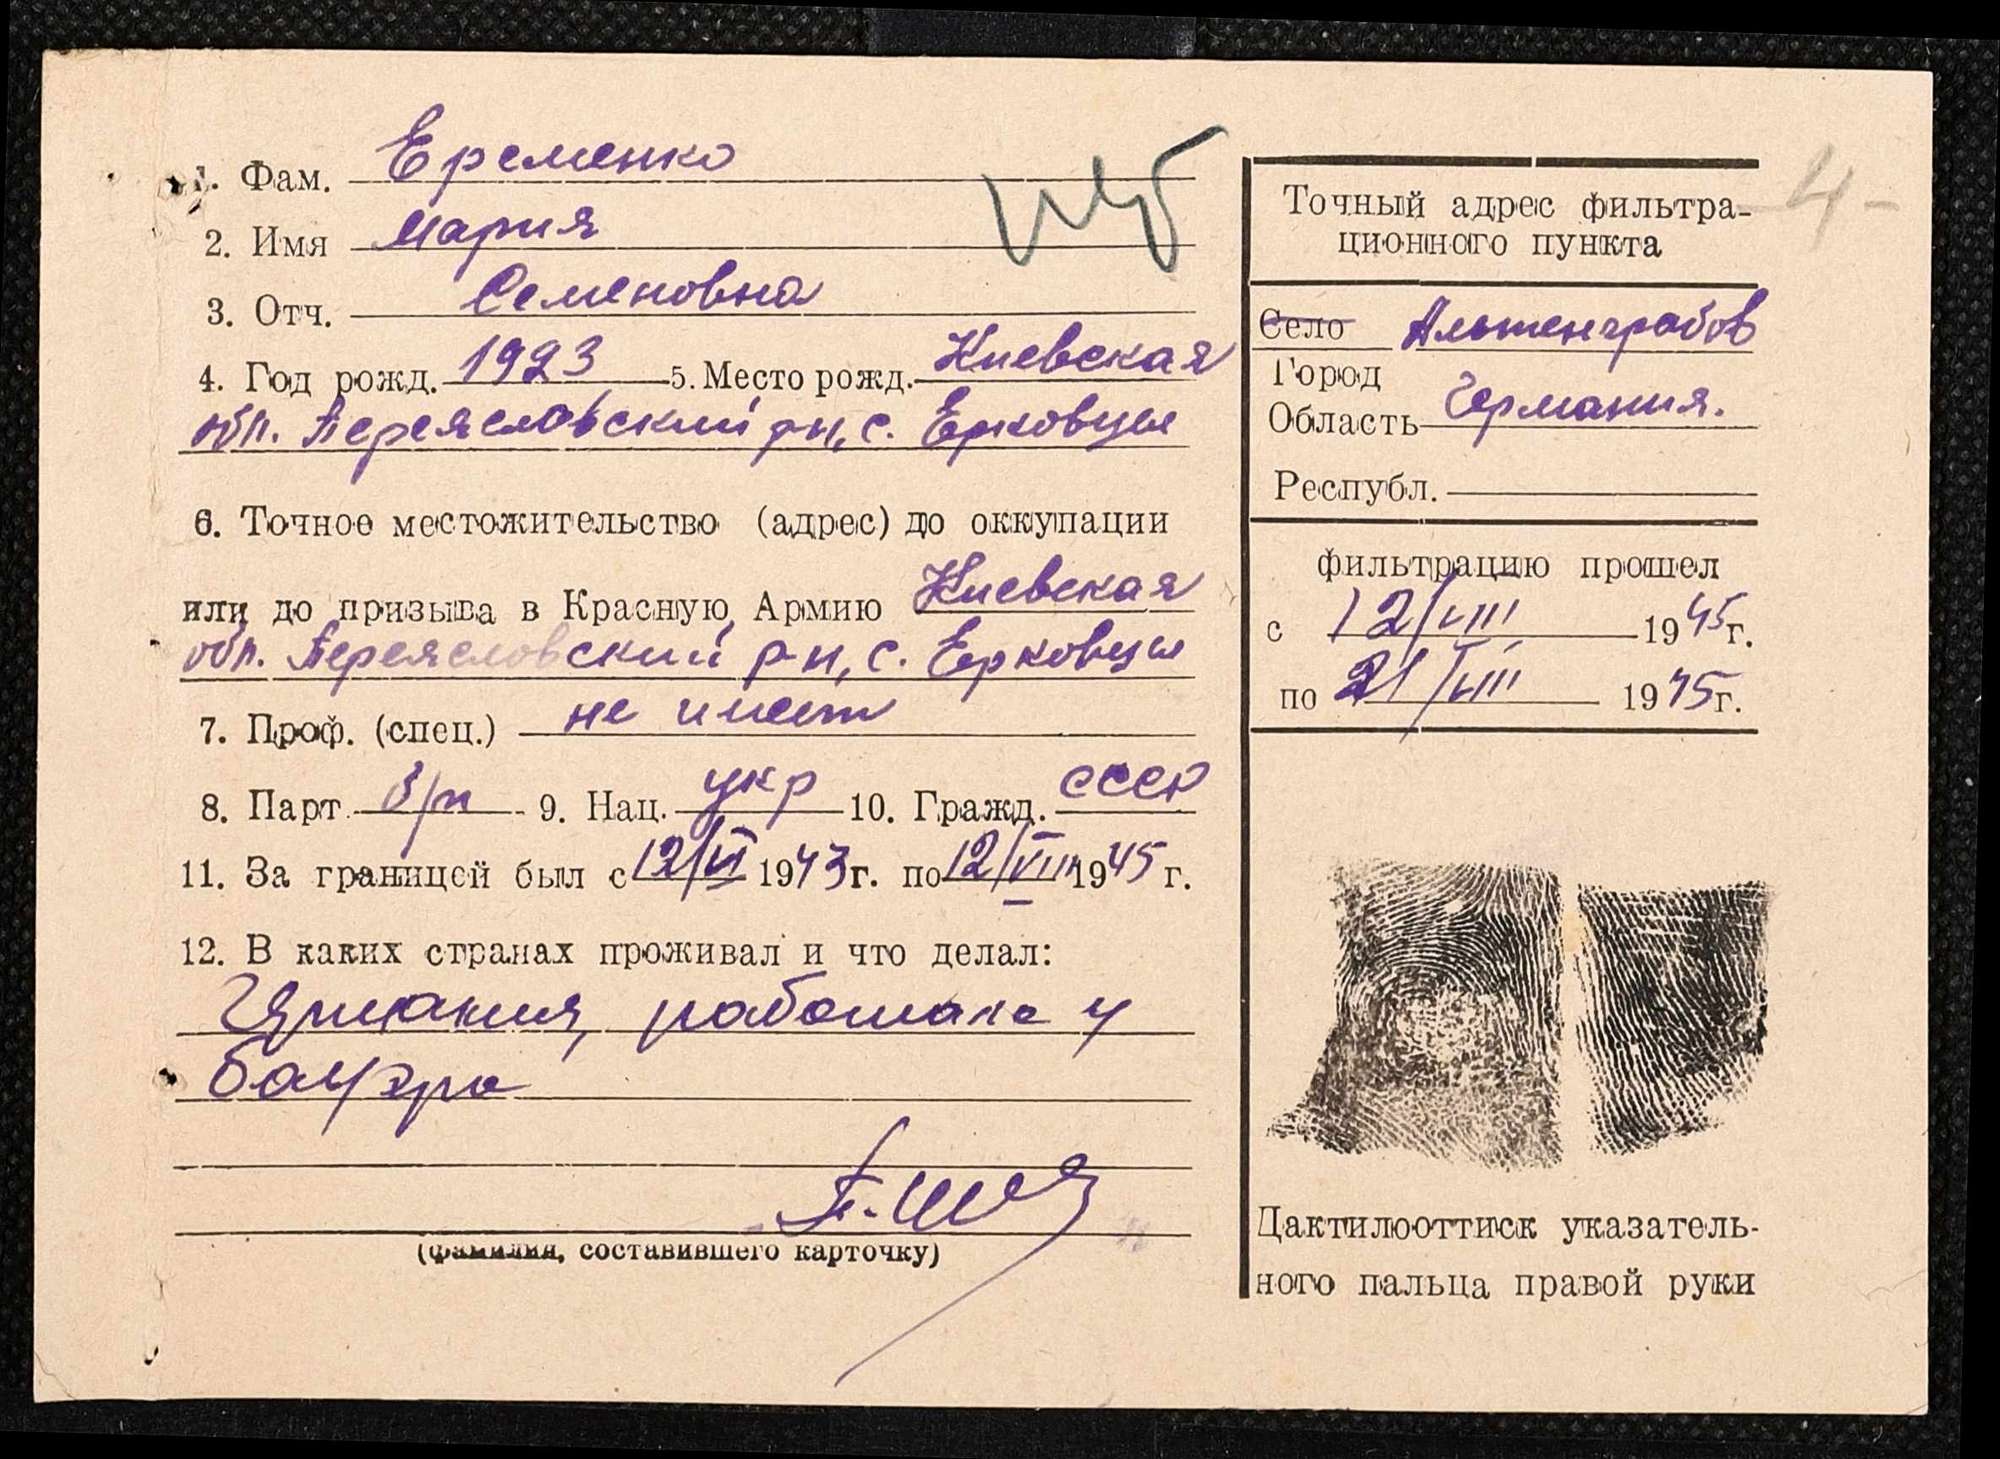 1. Фам. Еременко
2. Имя Мария
3. Отч. Семеновна
4. Год рожд. 1923 5. Место рожд. Киевская
обл. Переясловский р-н, с. Ерковцы
6. Точное местожительство (адрес) до оккупации
или до призыва в Красную Армию Киевская
обл. Переясловский р-н, с. Ерковцы
7. Проф. (спец.) не имеет
8. Парт. б/п 9. Нац. укр 10. Гражд. СССР
11. За границей был с 12/VI 1943 г. по 12/VIII 1945 г.
12. В каких странах проживал и что делал:
Германия, работала у
бауэра
(фамилия, составившего карточку)
Точный адрес фильтра-
ционного пункта
Село Альтенграбов
Город
Область Германия.
Республ.
фильтрацию прошел
с 12/VIII 1945 г.
по 21/VIII 1945 г.
Дактилооттиск указатель-
ного пальца правой руки